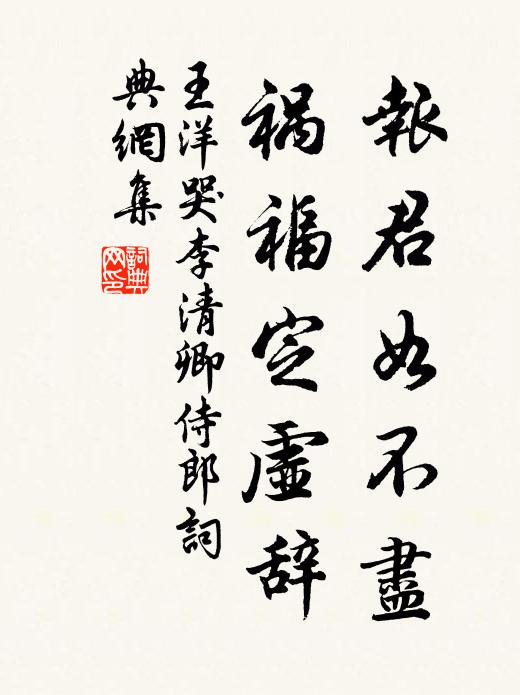 報君如不盡
禍福定虛辞
王洋哭李清卿侍郎詞
典網集
詞典網印